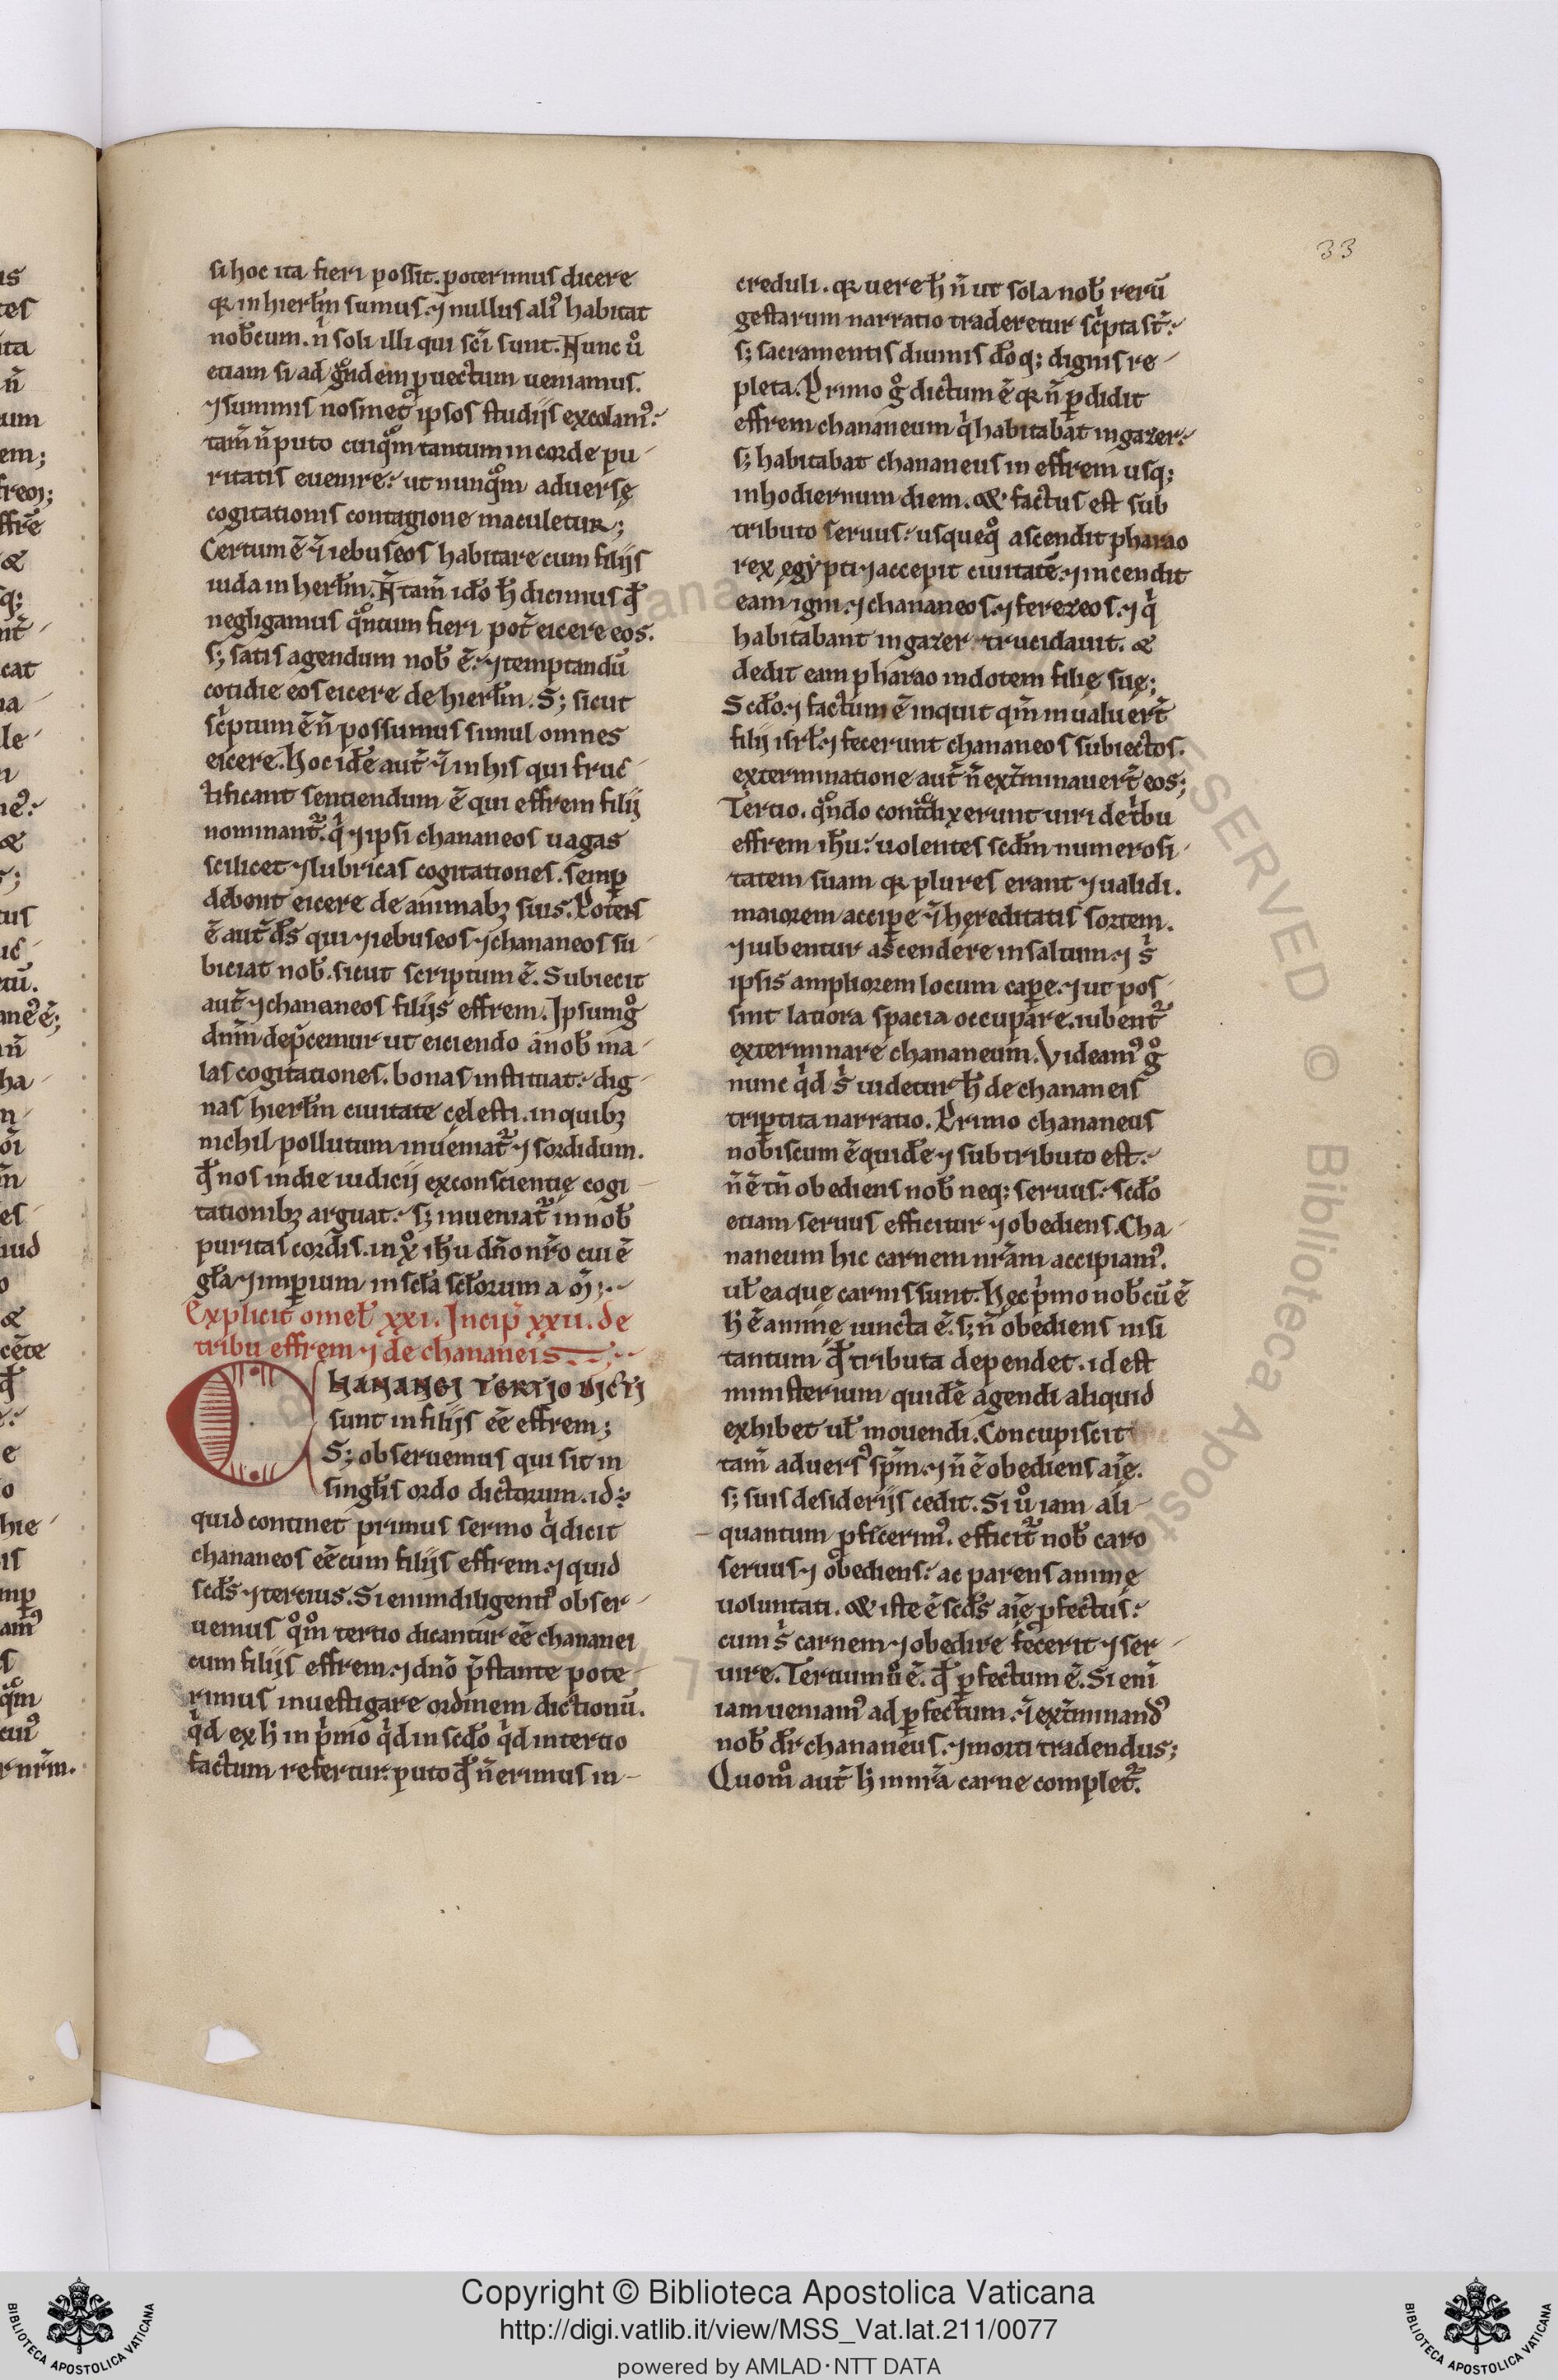 33
si hoc ita fieri possit. poterimus dicere
qꝛ in hierłm sumus. ⁊ nullus aliꝰ habitat
nob̄cum. n̄ soli illi qui sc̄i sunt. Nunc ůo
etiam si ad gͦndem ꝓuectum ueniamus.
⁊ summis nosmet ipsos studijs excolamꝰ.
tam̄ n̄ puto cuiqͦm tantum in corde pu-
ritatis euenire. ut nunqͦm aduersę
cogitationis contagione maculetur;
Certum ē ⁊ iebuseos habitare cum filijs
iuda in herłm. N̄ tam̄ idō h̄ dicimus qđ
negligamus qͦntum fieri pot̄ eicere eos.
s; satis agendum nob̄ ē. ⁊ temptandū
cotidie eos eicere de hierłm. S; sicut
scͥptum ē n̄ possumus simul omnes
eicere. Hoc idē aut̄ ⁊ in his qui fruc-
tificant sentiendum ē qui effrem filij
nominant᷑. qͥ ⁊ ipsi chananeos uagas
scilicet ⁊ lubricas cogitationes. semꝑ
debent eicere de animabꝫ suis. Potens
ē aut̄ ds̄ qui ⁊ iebuseos ⁊ chananeos su-
biciat nob̄. sicut scriptum ē. Subiecit
aut̄ ⁊ chananeos filijs effrem. Ipsum gͦ
dn̄m dep̄cemur ut eiciendo a nob̄ ma-
las cogitationes. bonas instituat. dig-
nas hierłm ciuitate cęlesti. in quibꝫ
nichil pollutum inueniat᷑ ⁊ sordidum.
qđ nos in die iudicij ex conscientię cogi-
tationibꝫ arguat. s; inueniat᷑ in nob̄
puritas cordis. in xͦ ih̄u dn̄o nr̄o cui ē
gła ⁊ imꝑium in scła scłorum am̄;
Explicit omeł xxi. Incip̄ xxii. de
tribu effrem ⁊ de chananeis
CHANANEI TERTIO DICTI
sunt in filijs eē effrem;
S; obseruemus qui sit in
singłis ordo dictorum. id
quid continet primus sermo qͥ dicit
chananeos eē cum filijs effrem. ⁊ quid
scds̄ ⁊ tercius. Si enim diligentiꝰ obser-
uemus qͦmͦ tertio dicantur eē chananei
cum filijs effrem. ⁊ dn̄o p̄stante pote-
rimus inuestigare ordinem dictionū.
qͥd ex h̄ in pͥmo qͥd in scđo qͥd in tertio
factum refertur. puto qđ n̄ erimus in-
creduli. qꝛ uere h̄ n̄ ut sola nob̄ rerū
gestarum narratio traderetur scͥpta st̄.
s; sacramentis diuinis dōq; dignis re-
pleta. Primo gͦ dictum ē qꝛ n̄ ꝑdidit
effrem chananeum qͥ habitabat in gazer.
s; habitabat chananeus in effrem usq;
in hodiernum diem. & factus est sub
tributo seruus. usquequͦ ascendit pharao
rex egypti ⁊ accepit ciuitatē. ⁊ incendit
eam igni. ⁊ chananeos. ⁊ ferezeos. ⁊ qͥ
habitabant in gazer trucidauit. &
dedit eam pharao in dotem filię suę;
Scđo. ⁊ factum ē inquit qm̄ inualuer̄t
filij isrł. ⁊ fecerunt chananeos subiectos.
exterminatione aut̄ n̄ ext̄minauer̄t eos;
Tertio. qͦndo contͣdixerunt uiri de tͥbu
effrem ih̄u. uolentes scđm numerosi-
tatem suam qꝛ plures erant ⁊ ualidi.
maiorem acciꝑe ⁊ hęreditatis sortem.
⁊ iubentur ascendere in saltum. ⁊ sͥ
ipsis ampliorem locum caꝑe. ⁊ ut pos-
sint latiora spacia occupare. iubent᷑
exterminare chananeum. Videamꝰ gͦ
nunc qͥd sͥ uidetur h̄ de chananeis
triꝑtita narratio. Primo chananeus
nobiscum ē quidē ⁊ sub tributo est.
n̄ ē tn̄ obediens nob̄ neq; seruus. scđo
etiam seruus efficitur ⁊ obediens. Cha-
naneum hic carnem nr̄am accipiamꝰ.
uł ea quę carnis sunt. Hęc pͥmo nob̄cū ē
h̄ ē animę iuncta ē. s; n̄ obediens nisi
tantum qđ tributa dependet. id est
ministerium quidē agendi aliquid
exhibet uł mouendi. Concupiscit
tam̄ aduersꝰ sp̄m. ⁊ n̄ ē obediens aīę.
s; suis desiderijs cedit. Si ůo iam ali-
quantum ꝓfecerimꝰ. efficit᷑ nob̄ caro
seruus ⁊ obediens. ac parens animę
uoluntati. & iste ē scds̄ aīę ꝓfectus.
cum sͥ carnem ⁊ obedire fecerit ⁊ ser-
uire. Tertium ůo ē. qđ ꝑfectum ē. Si enī
iam ueniamꝰ ad ꝑfectum. ⁊ ext̄minandꝰ
nob̄ dr̄ chananeus. ⁊ morti tradendus;
Quomͦ aut̄ h̄ in nr̄a carne complet᷑.
Copyright © Biblioteca Apostolica Vaticana
http://digi.vatlib.it/view/MSS_Vat.lat.211/0077
powered by AMLAD·NTT DATA
BIBLIOTECA APOSTOLICA VATICANA
BIBLIOTECA APOSTOLICA VATICANA